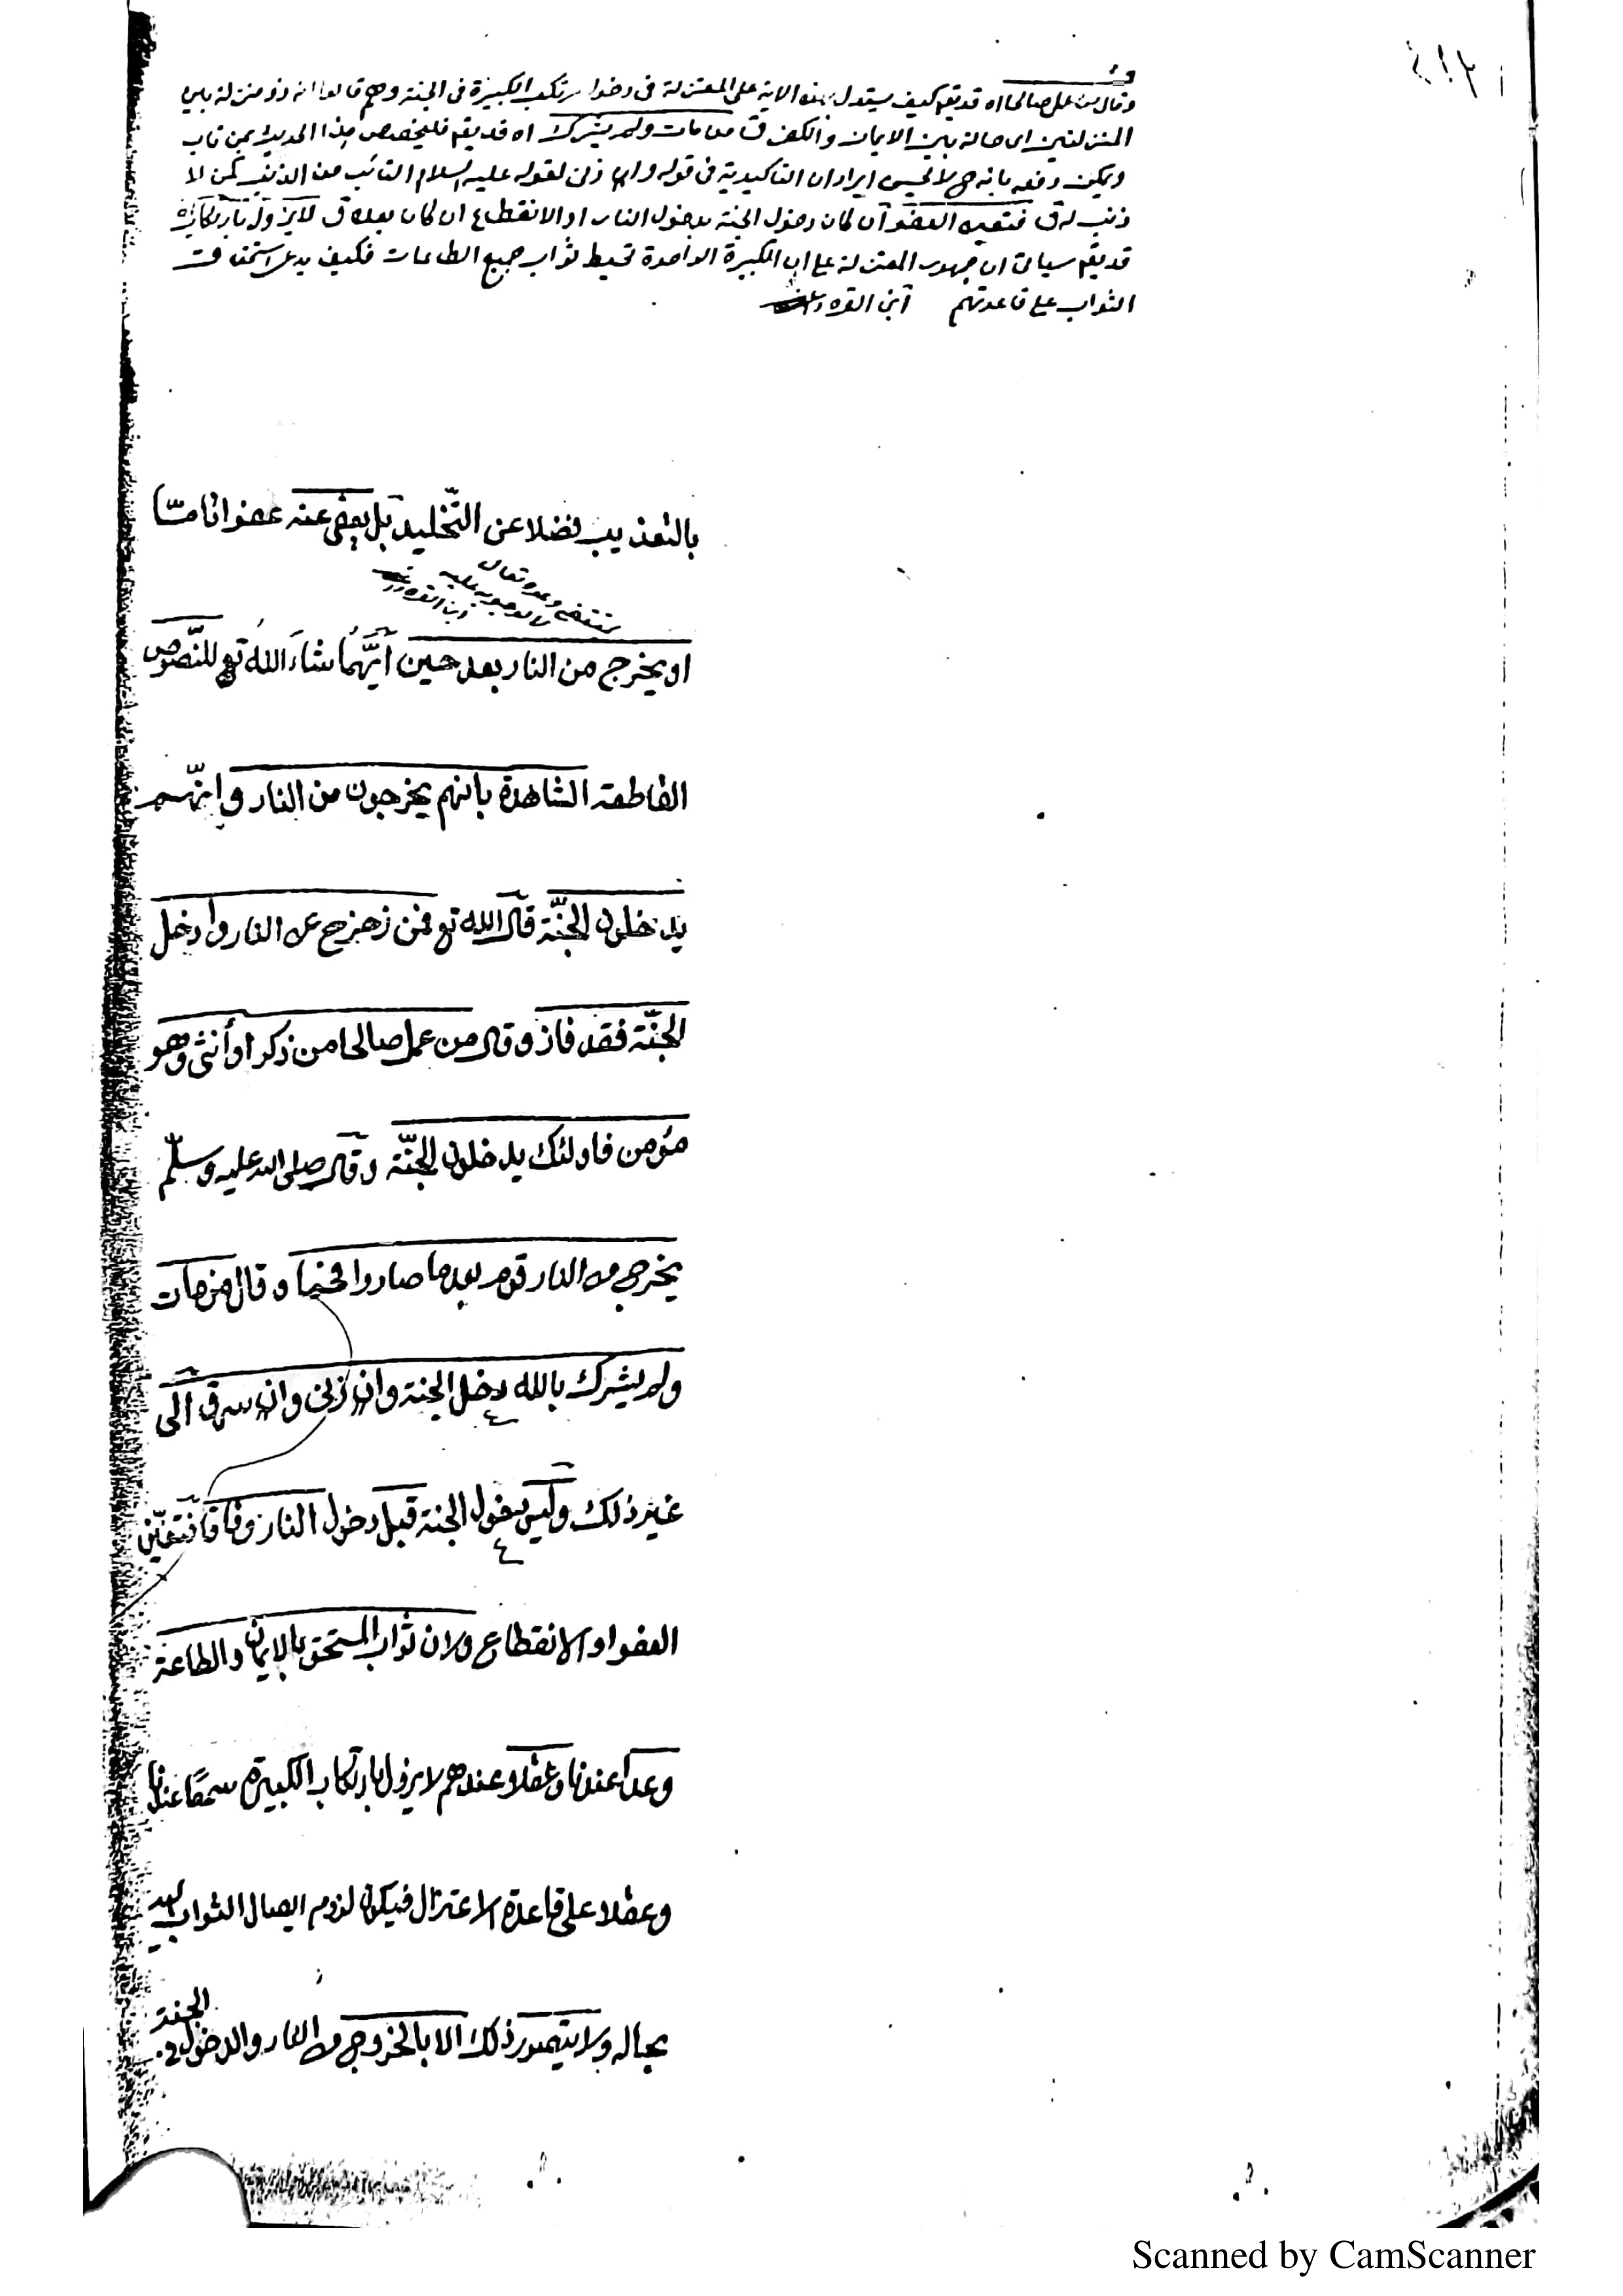 ٤١٣
وقال من عمل صالحا اه قد يقم كيف يستدل بهذه الاية على المعتزلة فى دخول مرتكب الكبيرة فى الجنة وهم قالوا انه ذو منزلة بين
المنزلتين اى حالة بين الايمان والكفر ق من مات ولم يشرك اه قد يقم فليخصص هذا الحديث بمن تاب
ويمكن دفعه بانه ح لا يحسن ايراد ان التاكيدية فى قوله وان زنى لقوله عليه السلام التائب من الذنب كمن لا
ذنب له ق فتعين العفو ان كان دخول الجنة بدخول النار او الانقطاع ان كان بعده ق لا يزول بارتكاب
قد يقم سياتى ان جمهور المعتزلة على ان الكبيرة الواحدة تحبط ثواب جميع الطاعات فكيف يدعى استحقاق
الثواب على قاعدتهم ابن القره داغى
بالتعذيب فضلا عن التّخليد بل يعفى عنه عفوا تامّا
بمقتضى وعده تعالى
لا لوجوبه عليه
ابن القره داغى
او يخرج من النار بعد حين ايّهما شاء الله تع للنّصوص
القاطعة الشاهدة بانهم يخرجون من النار وانّهم
يدخلون الجنّة قال الله تع فمن زحزح عن النار وادخل
الجنّة فقد فاز وقال من عمل صالحا من ذكر او أنثى وهو
مؤمن فاولئك يدخلون الجنّة وقال صلى الله عليه وسلّم
يخرج من النار قوم بعد ما صاروا فحما وقال من مات
ولم يشرك بالله دخل الجنة وان زنى وان سرق الى
غير ذلك وليس دخول الجنة قبل دخول النار وفاقا فتعيّن
العفو او الانقطاع ولان ثواب المستحق بالايمان والطاعة
وعدا عندنا وعقلا عندهم لا يزول بارتكاب الكبيرة سمعًا عندنا
وعقلا على قاعدة الاعتزال فيكون لزوم ايصال الثواب اليه
بحاله ولا يتصور ذلك الا بالخروج من النار والدخول فى الجنة
Scanned by CamScanner